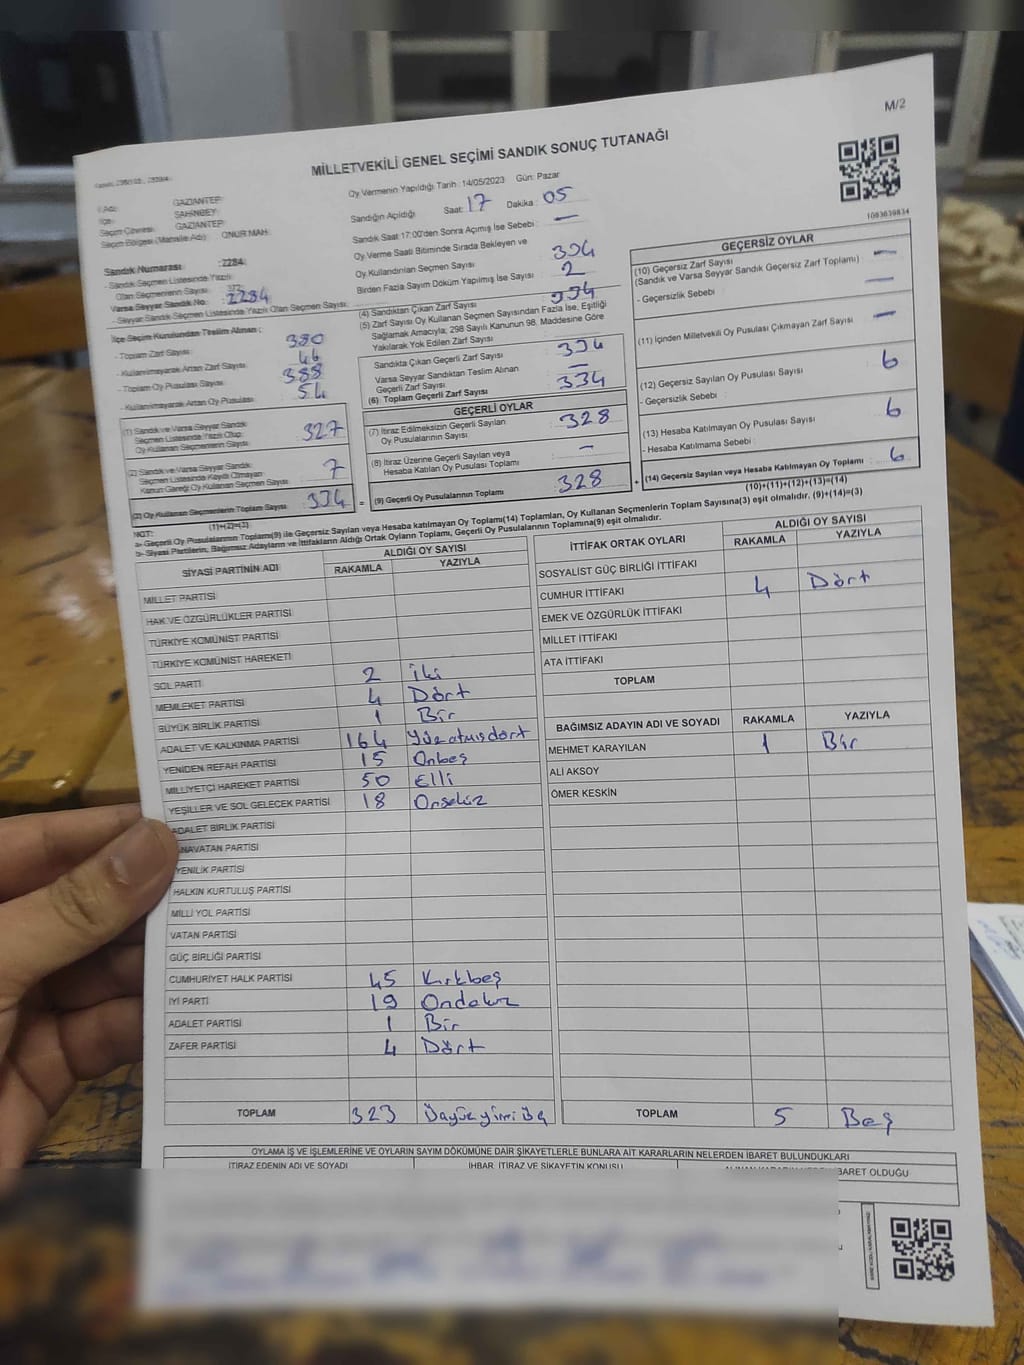 M/2
MİLLETVEKİLİ GENEL SEÇİMİ SANDIK SONUÇ TUTANAĞI
1093639834
İl Adı : GAZİANTEP
İlçe : ŞAHİNBEY
Seçim Çevresi : GAZİANTEP
Seçim Bölgesi (Mahalle Adı) : ONUR MAH.
Sandık Numarası : 2284
- Sandık Seçmen Listesinde Yazılı
Olan Seçmenlerin Sayısı : 373
Varsa Seyyar Sandık No : 2284
- Seyyar Sandık Seçmen Listesinde Yazılı Olan Seçmen Sayısı:
Oy Vermenin Yapıldığı Tarih :14/05/2023 Gün: Pazar
Sandığın Açıldığı Saat: 17 Dakika : 05
Sandık Saat 17:00'den Sonra Açılmış İse Sebebi : —
Oy Verme Saati Bitiminde Sırada Bekleyen ve
Oy Kullandırılan Seçmen Sayısı : 334
Birden Fazla Sayım Döküm Yapılmış İse Sayısı : 2
(4) Sandıktan Çıkan Zarf Sayısı : 334
(5) Zarf Sayısı Oy Kullanan Seçmen Sayısından Fazla İse, Eşitliği
Sağlamak Amacıyla; 298 Sayılı Kanunun 98. Maddesine Göre
Yakılarak Yok Edilen Zarf Sayısı :
İlçe Seçim Kurulundan Teslim Alınan ;
- Toplam Zarf Sayısı : 380
- Kullanılmayarak Artan Zarf Sayısı : 46
- Toplam Oy Pusulası Sayısı : 388
- Kullanılmayarak Artan Oy Pusulası : 54
(1) Sandık ve Varsa Seyyar Sandık
Seçmen Listesinde Yazılı Olup,
Oy Kullanan Seçmenlerin Sayısı : 327
(2) Sandık ve Varsa Seyyar Sandık
Seçmen Listesinde Kaydı Olmayan
Kanun Gereği Oy Kullanan Seçmen Sayısı : 7
(3) Oy Kullanan Seçmenlerin Toplam Sayısı : 334
(1)+(2)=(3)
Sandıkta Çıkan Geçerli Zarf Sayısı : 334
Varsa Seyyar Sandıktan Teslim Alınan
Geçerli Zarf Sayısı : —
(6) Toplam Geçerli Zarf Sayısı : 334
GEÇERLİ OYLAR
(7) İtiraz Edilmeksizin Geçerli Sayılan
Oy Pusulalarının Sayısı : 328
(8) İtiraz Üzerine Geçerli Sayılan veya
Hesaba Katılan Oy Pusulası Toplamı : —
= (9) Geçerli Oy Pusulalarının Toplamı : 328
GEÇERSİZ OYLAR
(10) Geçersiz Zarf Sayısı
(Sandık ve Varsa Seyyar Sandık Geçersiz Zarf Toplamı) : —
- Geçersizlik Sebebi : —
(11) İçinden Milletvekili Oy Pusulası Çıkmayan Zarf Sayısı : —
(12) Geçersiz Sayılan Oy Pusulası Sayısı : 6
- Geçersizlik Sebebi :
(13) Hesaba Katılmayan Oy Pusulası Sayısı : 6
- Hesaba Katılmama Sebebi :
+ (14) Geçersiz Sayılan veya Hesaba Katılmayan Oy Toplamı : 6
(10)+(11)+(12)+(13)=(14)
NOT:
a- Geçerli Oy Pusulalarının Toplamı(9) ile Geçersiz Sayılan veya Hesaba katılmayan Oy Toplamı(14) Toplamları, Oy Kullanan Seçmenlerin Toplam Sayısına(3) eşit olmalıdır. (9)+(14)=(3)
b- Siyasi Partilerin, Bağımsız Adayların ve İttifakların Aldığı Ortak Oyların Toplamı, Geçerli Oy Pusulalarının Toplamına(9) eşit olmalıdır.
SİYASİ PARTİNİN ADI ALDIĞI OY SAYISI
RAKAMLA YAZIYLA
MİLLET PARTİSİ
HAK VE ÖZGÜRLÜKLER PARTİSİ
TÜRKİYE KOMÜNİST PARTİSİ
TÜRKİYE KOMÜNİST HAREKETİ
SOL PARTİ 2 İki
MEMLEKET PARTİSİ 4 Dört
BÜYÜK BİRLİK PARTİSİ 1 Bir
ADALET VE KALKINMA PARTİSİ 164 Yüzatmışdört
YENİDEN REFAH PARTİSİ 15 Onbeş
MİLLİYETÇİ HAREKET PARTİSİ 50 Elli
YEŞİLLER VE SOL GELECEK PARTİSİ 18 Onsekiz
ADALET BİRLİK PARTİSİ
NAVATAN PARTİSİ
YENİLİK PARTİSİ
HALKIN KURTULUŞ PARTİSİ
MİLLİ YOL PARTİSİ
VATAN PARTİSİ
GÜÇ BİRLİĞİ PARTİSİ
CUMHURİYET HALK PARTİSİ 45 Kırkbeş
İYİ PARTİ 19 Ondokuz
ADALET PARTİSİ 1 Bir
ZAFER PARTİSİ 4 Dört
TOPLAM 323 Üçyüzyirmi Üç
İTTİFAK ORTAK OYLARI ALDIĞI OY SAYISI
RAKAMLA YAZIYLA
SOSYALİST GÜÇ BİRLİĞİ İTTİFAKI
CUMHUR İTTİFAKI 4 Dört
EMEK VE ÖZGÜRLÜK İTTİFAKI
MİLLET İTTİFAKI
ATA İTTİFAKI
TOPLAM
BAĞIMSIZ ADAYIN ADI VE SOYADI RAKAMLA YAZIYLA
MEHMET KARAYILAN 1 Bir
ALİ AKSOY
ÖMER KESKİN
TOPLAM 5 Beş
OYLAMA İŞ VE İŞLEMLERİNE VE OYLARIN SAYIM DÖKÜMÜNE DAİR ŞİKAYETLERLE BUNLARA AİT KARARLARIN NELERDEN İBARET BULUNDUKLARI
İTİRAZ EDENİN ADI VE SOYADI İHBAR, İTİRAZ VE ŞİKAYETİN KONUSU BARET OLDUĞU